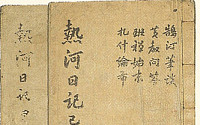 鵠汀筆談
黃教問答
班禪始末
札什倫布
熱河日記
熱河日記